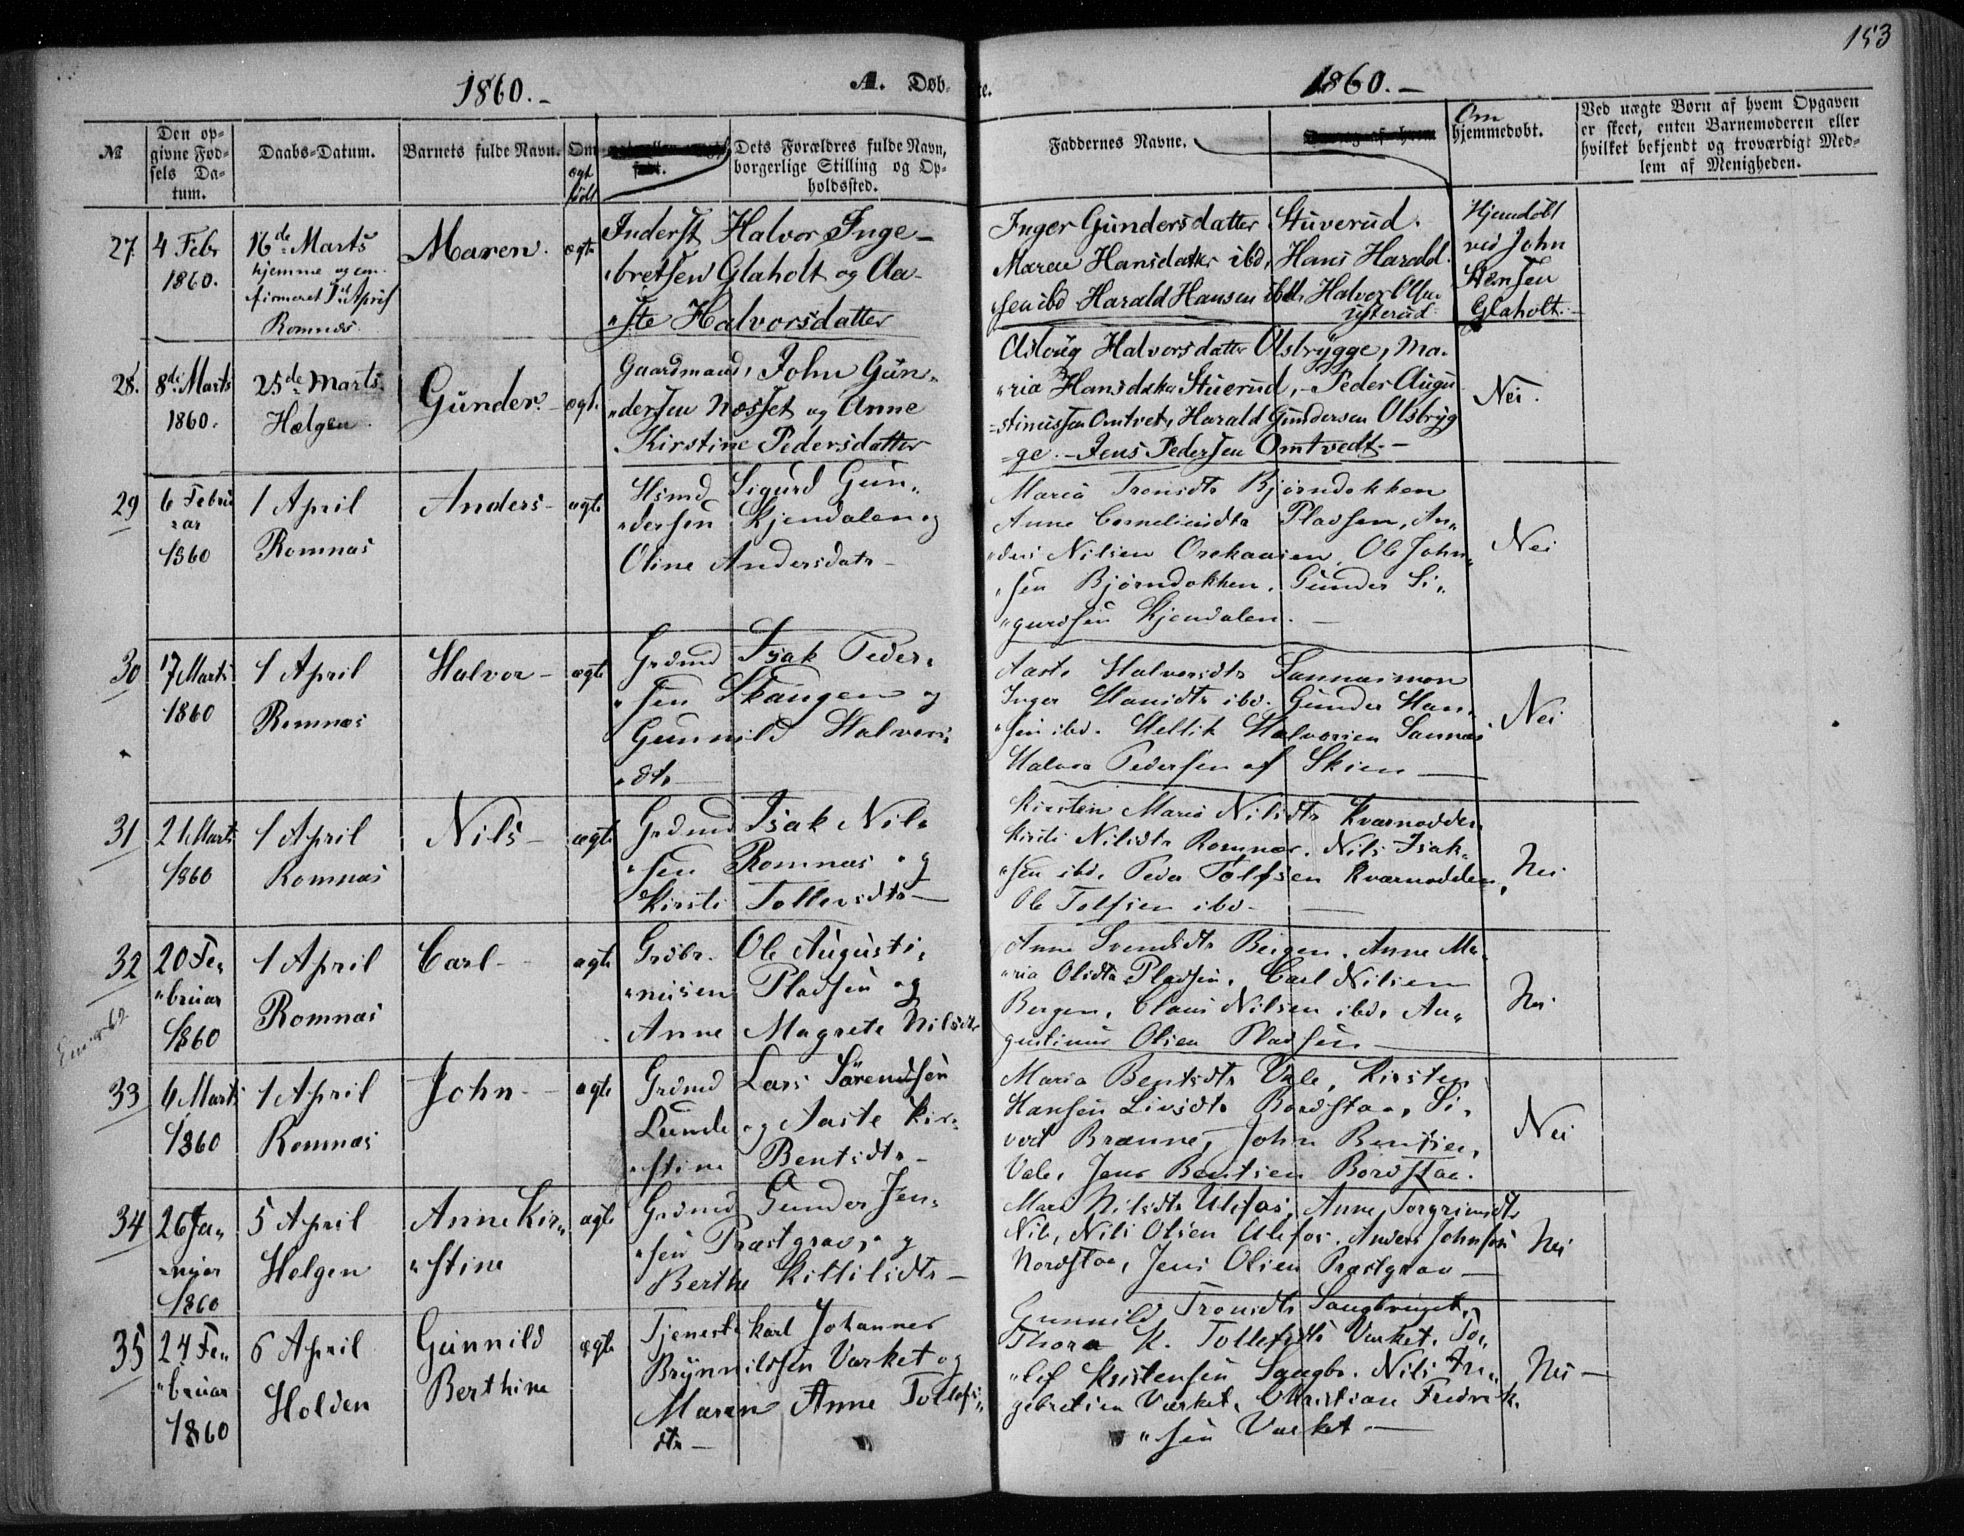 153
1860.-
A. Døb-
te.
1860.-
№
Den op-
givne Fød-
sels Da-
tum.
Daabs-Datum.
Barnets fulde Navn.
Om
ægt
født
født.
Dets Forældres fulde Navn,
borgerlige Stilling og Op-
holdssted.
Faddernes Navne.
Om
hjemmedøbt.
Ved uægte Børn af hvem Opgaven
er skeet, enten Barnemoderen eller
hvilket bekjendt og troværdigt Med-
lem af Menigheden.
27.
4 Febr
1860.
16de Marts
hjemme og con-
firmeret 1ste April
Romnæs.
Maren.
ægte
Inderst Halvor Inge-
bretsen Glaholt og Aa-
"ste Halvorsdatter
Inger Gundersdatter Stuverud.
Maren Hansdatter ibd, Hans Harald-
"sen ibd Harald Hansen ibd, Halvor Olsen
Hjemdøbt
ved John
Stensen
Glaholt.-
28.
8de Marts
1860.
25de Marts.
Helgen.
Gunder.-
ægte.
Gaardmand, John Gun-
"dersen Næsset og Anne
Kirstine Pedersdatter
Asloug Halvorsdatter Olsbrygge, Ma-
"ria Hansdatter Stuerud,- Peder Augu
=stinussen Omtvet, Harald Gundersen Olsbryg
=ge.- Jens Pedersen Omtvedt.-
Nei.
29
6 Febru
"ar
1860
1 April
Romnæs
Anders-
ægte
Hsmd Sigurd Gun-
"dersen Kjendalen og
Oline Andersdatr-
Maria Tronsdtr Bjørndokken
Anne Corneliusdtr Pladsen, An-
"ders Nilsen Orekaasen, Ole John-
"sen Bjørndokken. Gunder Si-
"gurdsen Kjendalen.-
Nei
30
17 Marts
1860
1 April
Romnæs
Halvor-
ægte
Grdmd Isak Peder-
"sen Skaugen og
Gunnild Halvors-
"dtr-
Aaste Halvorsdtr Sannæsmoen
Inger Hansdtr ibd. Gunder Han-
"sen ibd. Kettil Halvorsen Sannæs.
Halvor Pedersen af Skien-
Nei
31
21 Marts
1860
1 April
Romnæs
Nils-
ægte
Grdmd Isak Nil-
"sen Romnæs og
Kirsti Tollevsdtr-
Kirsten Maria Nilsdtr Kværnodden
Kirsti Nilsdtr Romnæs. Nils Isak-
"sen ibd. Peder Tolfsen Kværnodden,
Ole Tolfsen ibd.-
Nei
32
20 Fe-
"bruar
1860
1 April
Romnæs
Carl-
ægte
Grdbr. Ole Augusti-
"nusen Pladsen og
Anne Magrete Nilsdtr
Anne Svendsdtr Bergen. Anne Ma-
"ria Olsdtr Pladsen. Carl Nilsen
Bergen, Claus Nilsen ibd. Au-
gustinus Olsen Pladsen-
Nei
33
6 Marts
1860
1 April
Romnæs
John-
ægte
Grdmd Lars Sørensen
Lunde og Aaste Kir-
"stine Bentsdtr-
Maria Bentsdtr Vale, Kirsten
Hansen Livsdtr Bordstaa, Si-
vert Brænne, John Bentsen,
Vale, Jens Bentsen Bordstaa.
Nei
34
26 Ja-
"nuar
1860
5 April
Helgen
Anne Kir-
"stine
ægte
Grdmd Gunder Jen-
"sen Præstgrav, og
Berthe Kittilsdtr-
Maren Nilsdtr Ulefos, Anne Torgrimsdtr
Nils, Nils Olsen Ulefos. Anders Johnsen
Nordstaa, Jens Olsen Præstgrav-
Nei
35
24 Fe-
"bruar
1860
6 April
Holden
Gunnild
Berthine
ægte
Tjenestekarl Johannes
Brynnilsen Værket og
Maren Anne Tollefs-
dtr-
Gunnild Tronsdtr
Thora K. Tollefsdtr Værket. To-
"lef Kristensen Saugbr. Nils In-
gebretsen Værket, Christian Fredrik-
"sen Værket-
Nei-